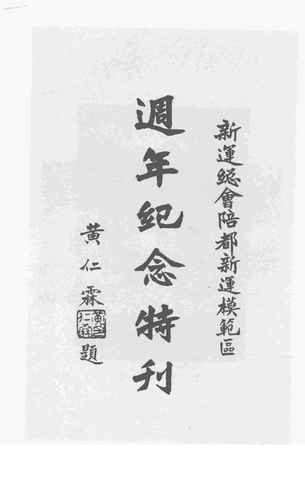 新運總會陪都新運模範區
週年紀念特刊
黃仁霖題